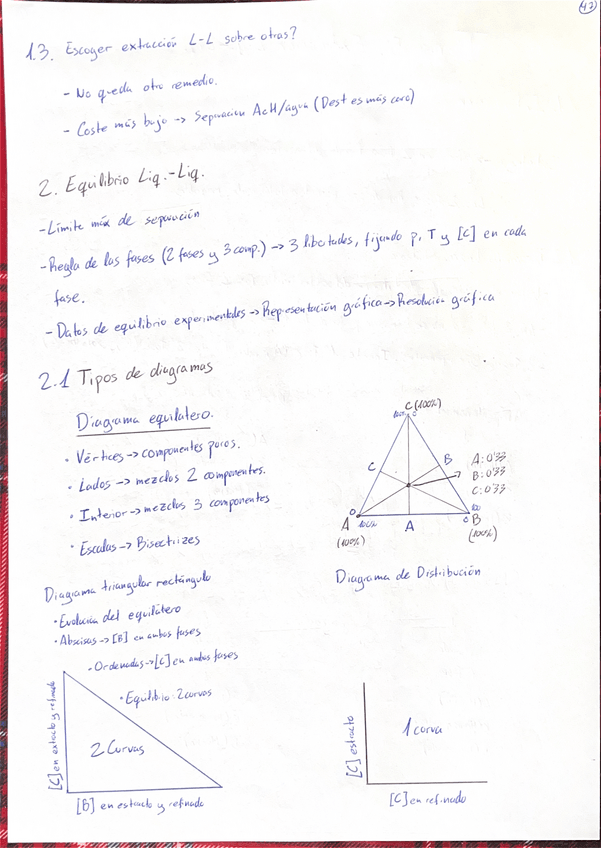 47
1.3. Escoger extracción L-L sobre otras?
- No queda otro remedio.
- Coste más bajo → Separación AcH/agua (Dest es más caro)
2. Equilibrio Liq.-Liq.
- Límite máx de separación
- Regla de las fases (2 fases y 3 comp.) → 3 libertades, fijando p, T y [C] en cada
fase.
- Datos de equilibrio experimentales → Representación gráfica → Resolución gráfica
2.1 Tipos de diagramas
Diagrama equilatero.
• Vértices → componentes puros.
• Lados → mezclas 2 componentes.
• Interior → mezclas 3 componentes
• Escalas → Bisectrizes
C (100%)
100% 0
C
B
A: 0'33
B: 0'33
C: 0'33
0
100%
A
(100%)
A
100
0
B
(100%)
Diagrama triangular rectángulo
• Evolución del equilátero
• Abscisas → [B] en ambas fases
• Ordenadas → [C] en ambas fases
• Equilibrio 2 curvas
[C] en extracto y refinado
2 Curvas
[B] en extracto y refinado
Diagrama de Distribución
[C] extracto
1 curva
[C] en refinado